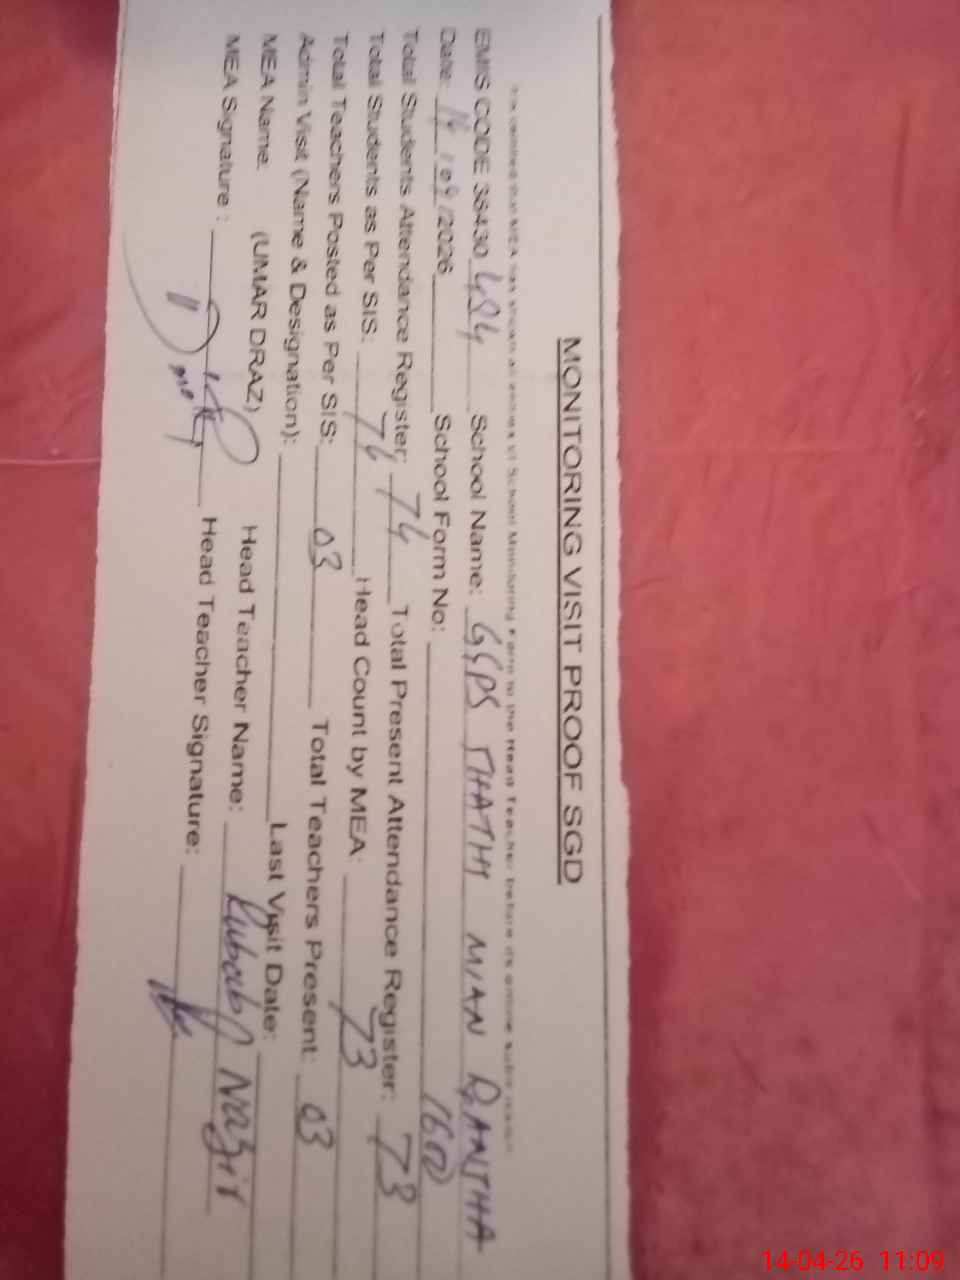 MONITORING VISIT PROOF SGD
It is certified that MEA has shown all entries of School Monitoring Form to the Head Teacher before its online submission
EMIS CODE 38430 484 School Name: GGPS THATHI MIAN RANTHA
Date: 14 / 04 / 2026 School Form No: 1600
Total Students Attendance Register: 74 Total Present Attendance Register: 73
Total Students as Per SIS: 76 Head Count by MEA: 73
Total Teachers Posted as Per SIS: 03 Total Teachers Present: 03
Admin Visit (Name & Designation): Last Visit Date:
MEA Name: (UMAR DRAZ) Head Teacher Name: Rubab Nazir
MEA Signature : Head Teacher Signature:
14-04-26 11:09